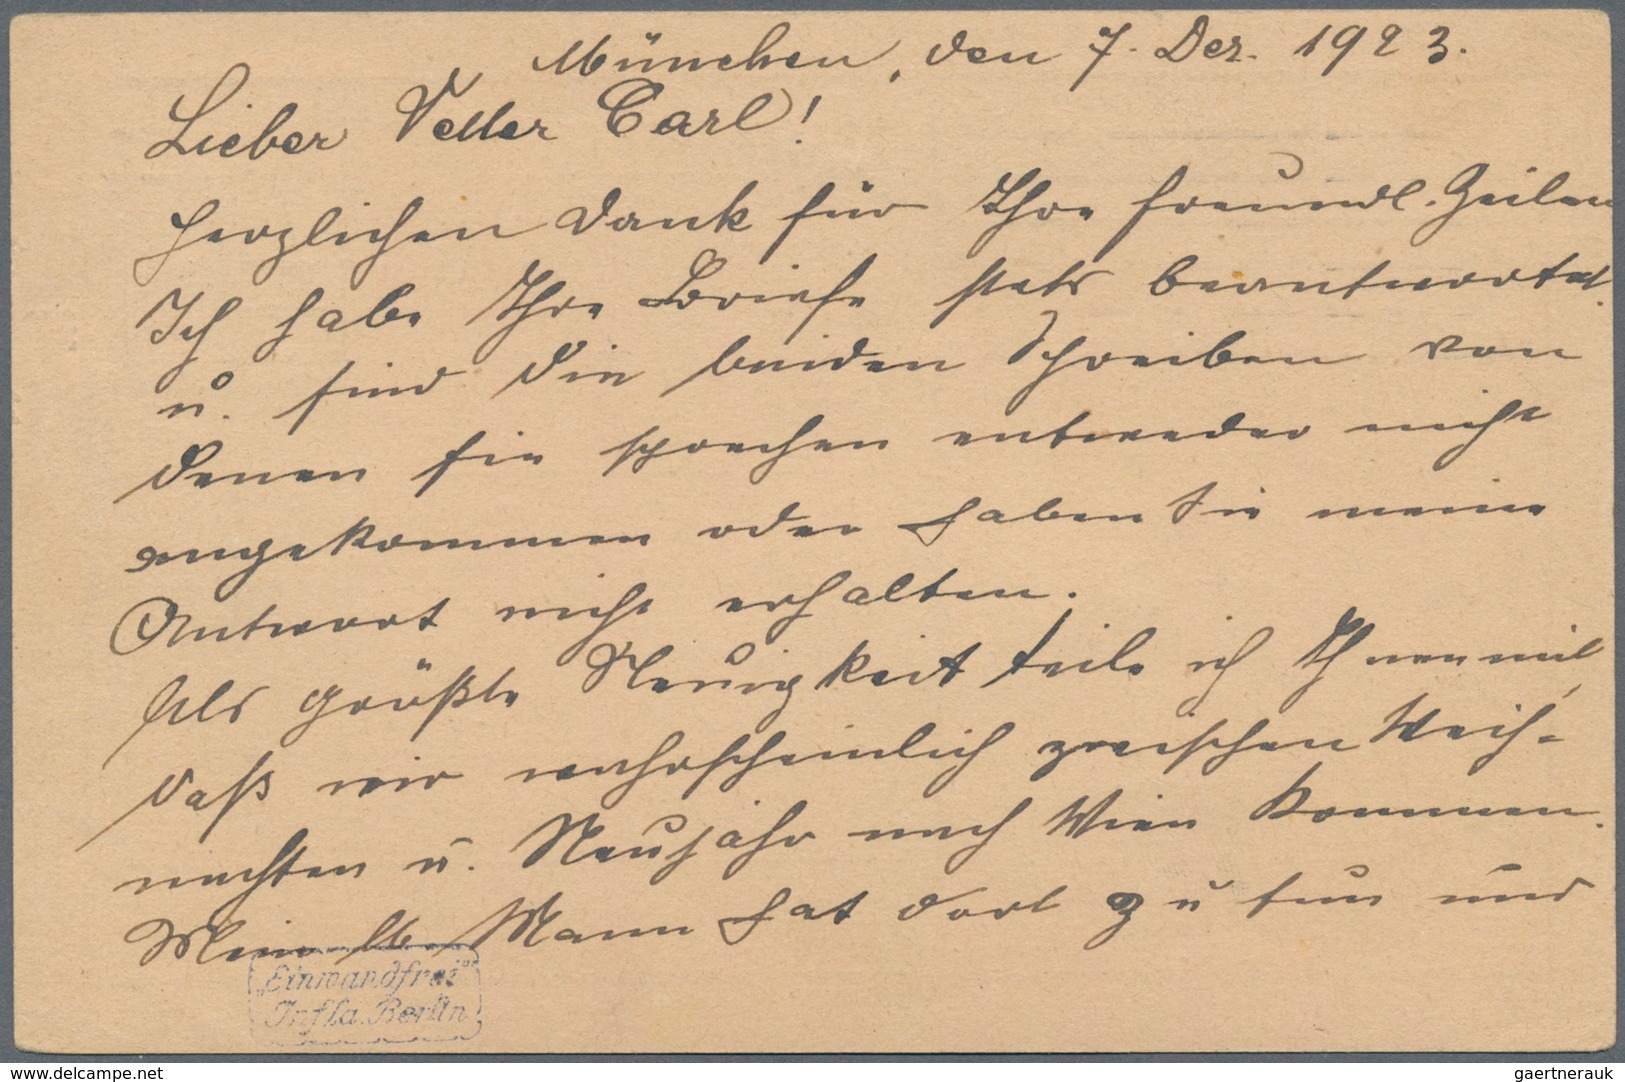 München, den 7. Dez. 1923.
Lieber Vetter Carl!
Herzlichen Dank für Ihre freundl. Zeilen
Ich habe Ihre Briefe stets beantwortet.
u. sind die beiden Schreiben von
denen sie sprechen entweder nicht
angekommen oder haben Sie meine
Antwort nicht erhalten.
Als größte Neuigkeit teile ich Ihnen mit,
daß wir wahrscheinlich zwischen Weih-
nachten u. Neujahr nach Wien kommen.
Mein lb. Mann hat dort zu tun und
„Einwandfrei"
Infla Berlin
www.delcampe.net
gaertnerauk